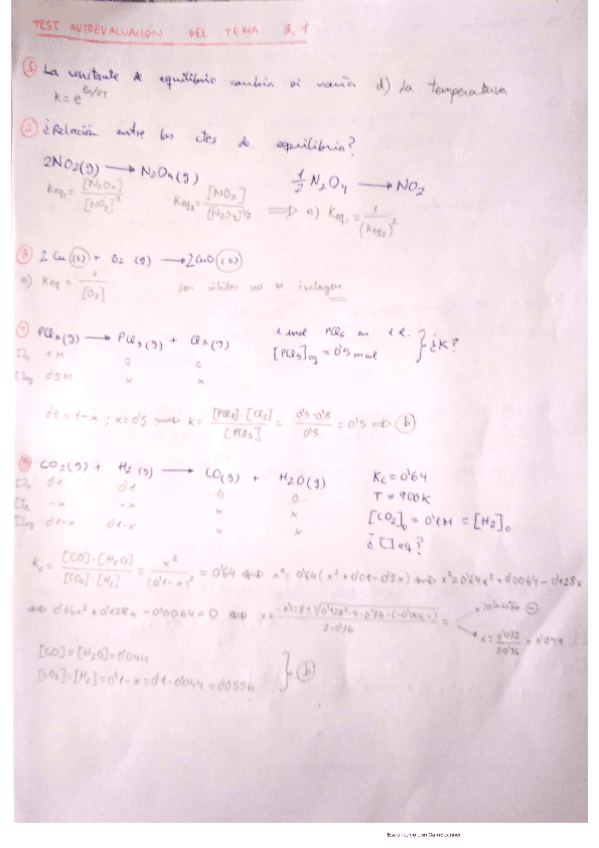 TEST AUTOEVALUACIÓN DEL TEMA 3.1
① La constante de equilibrio cambia si varía d) La temperatura
② ¿Relación entre las ctes de equilibrio?
2NO2(g) → N2O4(g) 1/2 N2O4 → NO2
Keq1 = [N2O4]/[NO2]^2 Keq2 = [NO2]/[N2O4]^1/2 ⟹ e) Keq1 = 1/(Keq2)^2
③ 2Cu(s) + O2 (g) → 2CuO(s)
Keq = 1/[O2] Los sólidos no se incluyen
④ PCl5(g) → PCl3(g) + Cl2(g) 1 mol PCl5 en 1 L.
[]0 1M 0 0 [PCl5]eq = 0'5 mol } ¿K?
[]eq 0'5M x x
0'5 = 1-x ; x = 0'5 ⟹ K = [PCl3]·[Cl2]/[PCl5] = 0'5·0'5/0'5 = 0'5 ⟹ b
CO2(g) + H2(g) → CO(g) + H2O(g) Kc = 0'64
[]0 0'1 0'1 0 0 T = 900K
-x -x x x [CO2]0 = 0'1M = [H2]0
[]eq 0'1-x 0'1-x x x ¿[]eq?
Kc = [CO]·[H2O]/[CO2]·[H2] = x^2/(0'1-x)^2 = 0'64 ⟺ x^2 = 0'64(x^2+0'01-0'2x) ⟺ x^2 = 0'64x^2 + 0'0064 - 0'128x
⟺ 0'36x^2 + 0'128x - 0'0064 = 0 ⟺ x = -0'128±√0'128^2-4·0'36·(-0'0064)/2·0'36 = solución ⊖
x = 0'032/2·0'36 = 0'044
[CO] = [H2O] = 0'044
[CO2] = [H2] = 0'1-x = 0'1-0'044 = 0'0556 } b